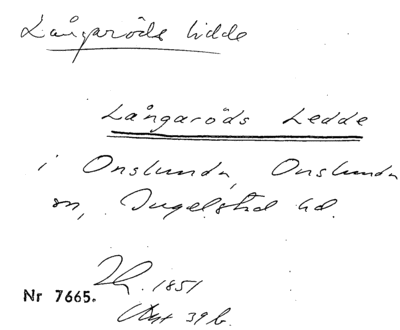 Långaröds lidde
Långaröds Ledde
i Onslunda, Onslunda
sn, Ingelstad hd.
1851
Nr 7665.
Akt 39 b.